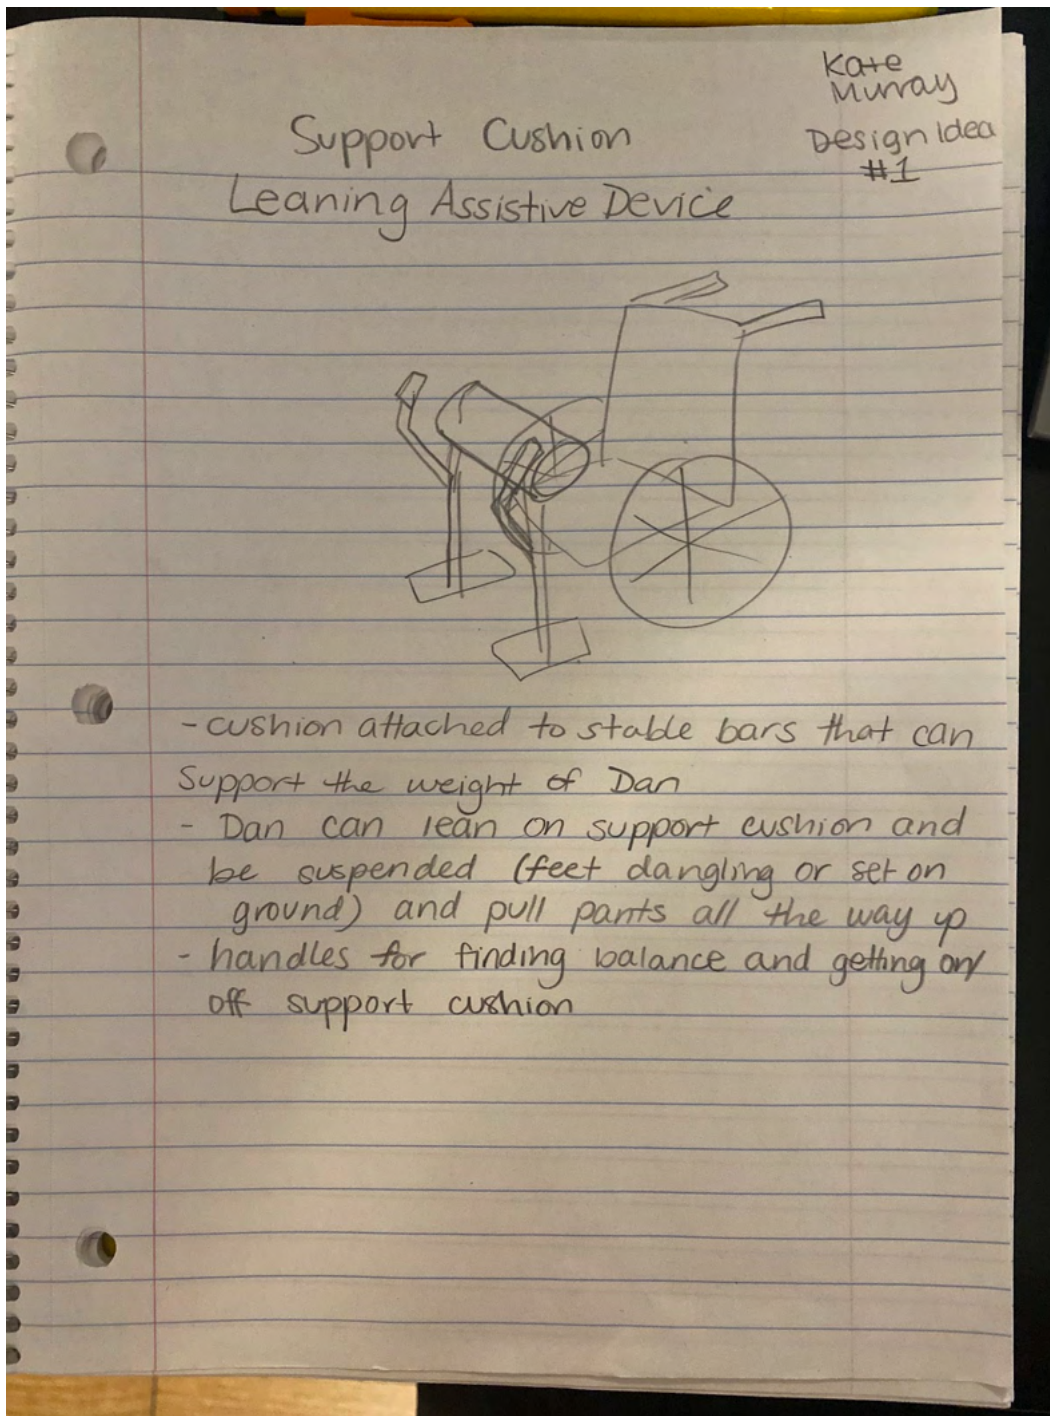 Kate
Murray
Design Idea
#1
Support Cushion
Leaning Assistive Device
- cushion attached to stable bars that can
support the weight of Dan
- Dan can lean on support cushion and
be suspended (feet dangling or set on
ground) and pull pants all the way up
- handles for finding balance and getting on/
off support cushion